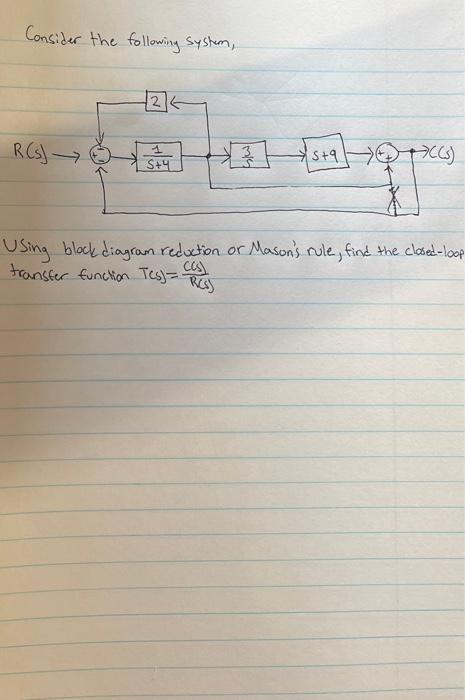 Consider the following system,
2
R(s) 1/(s+4) 3/s s+9 C(s)
+ - - + +
Using block diagram reduction or Mason's rule, find the closed-loop
transfer function T(s)= C(s)/R(s)